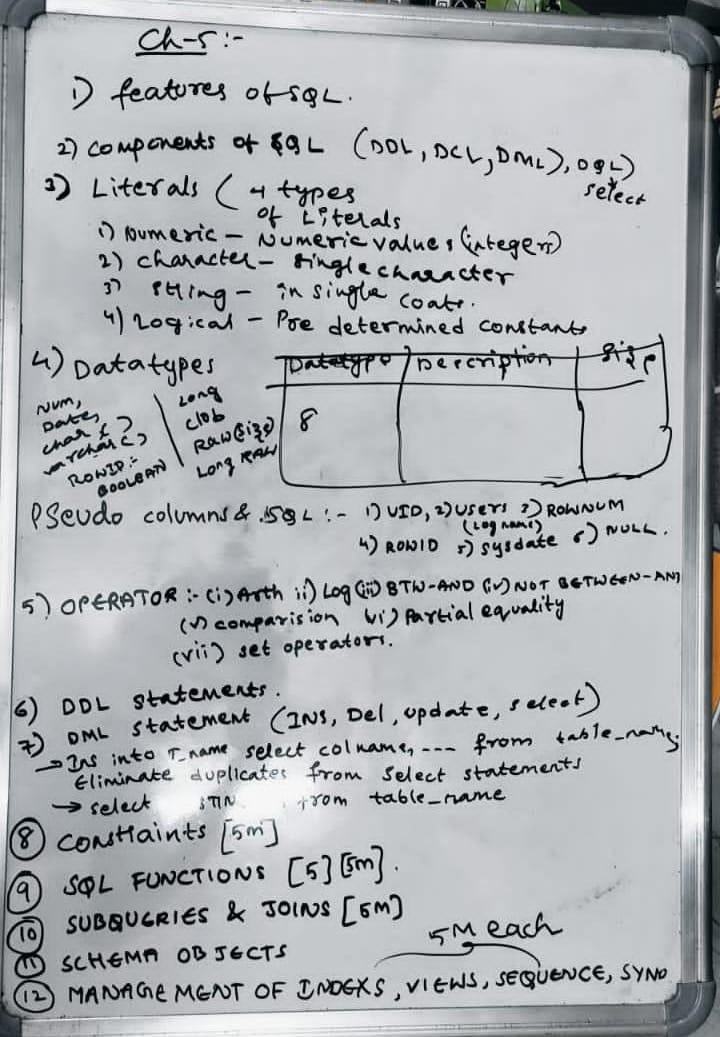 Ch-5:-
1) features of SQL.
2) components of SQL (DDL, DCL, DML), DQL)
select
3) Literals ( 4 types
of Literals
1) Numeric - Numeric values (integers)
2) character - single character
3) String - in single coats.
4) Logical - Pre determined constants
4) Datatypes
Datatype Description Size
8
Num,
Date,
char & ?
varchar 2,
ROWID :-
BOOLEAN
Long
clob
Raw(size)
Long RAW
PSeudo columns & SQL :- 1) UID, 2) users 3) ROWNUM
(Log name)
4) ROWID 5) sysdate 6) NULL.
5) OPERATOR :- (i) Arth ii) Log (iii) BTW-AND (iv) NOT BETWEEN-AND
(v) comparision vi) Partial equality
(vii) set operators.
6) DDL statements.
7) DML statement (INS, Del, update, select)
→ Ins into T_name select colname, --- from table_name;
Eliminate duplicates from select statements
→ select from table_name
8 constraints [5m]
9 SQL FUNCTIONS [5] [5m].
10 SUBQUERIES & JOINS [5M]
11 SCHEMA OBJECTS
5M each
12 MANAGEMENT OF INDEXS, VIEWS, SEQUENCE, SYNO